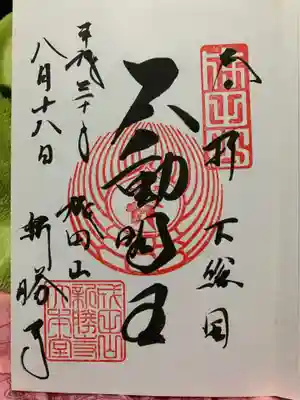 奉拝
下総国
不動明王
成田山
新勝寺
平成三十年
八月十八日
成田山
新勝寺
本堂